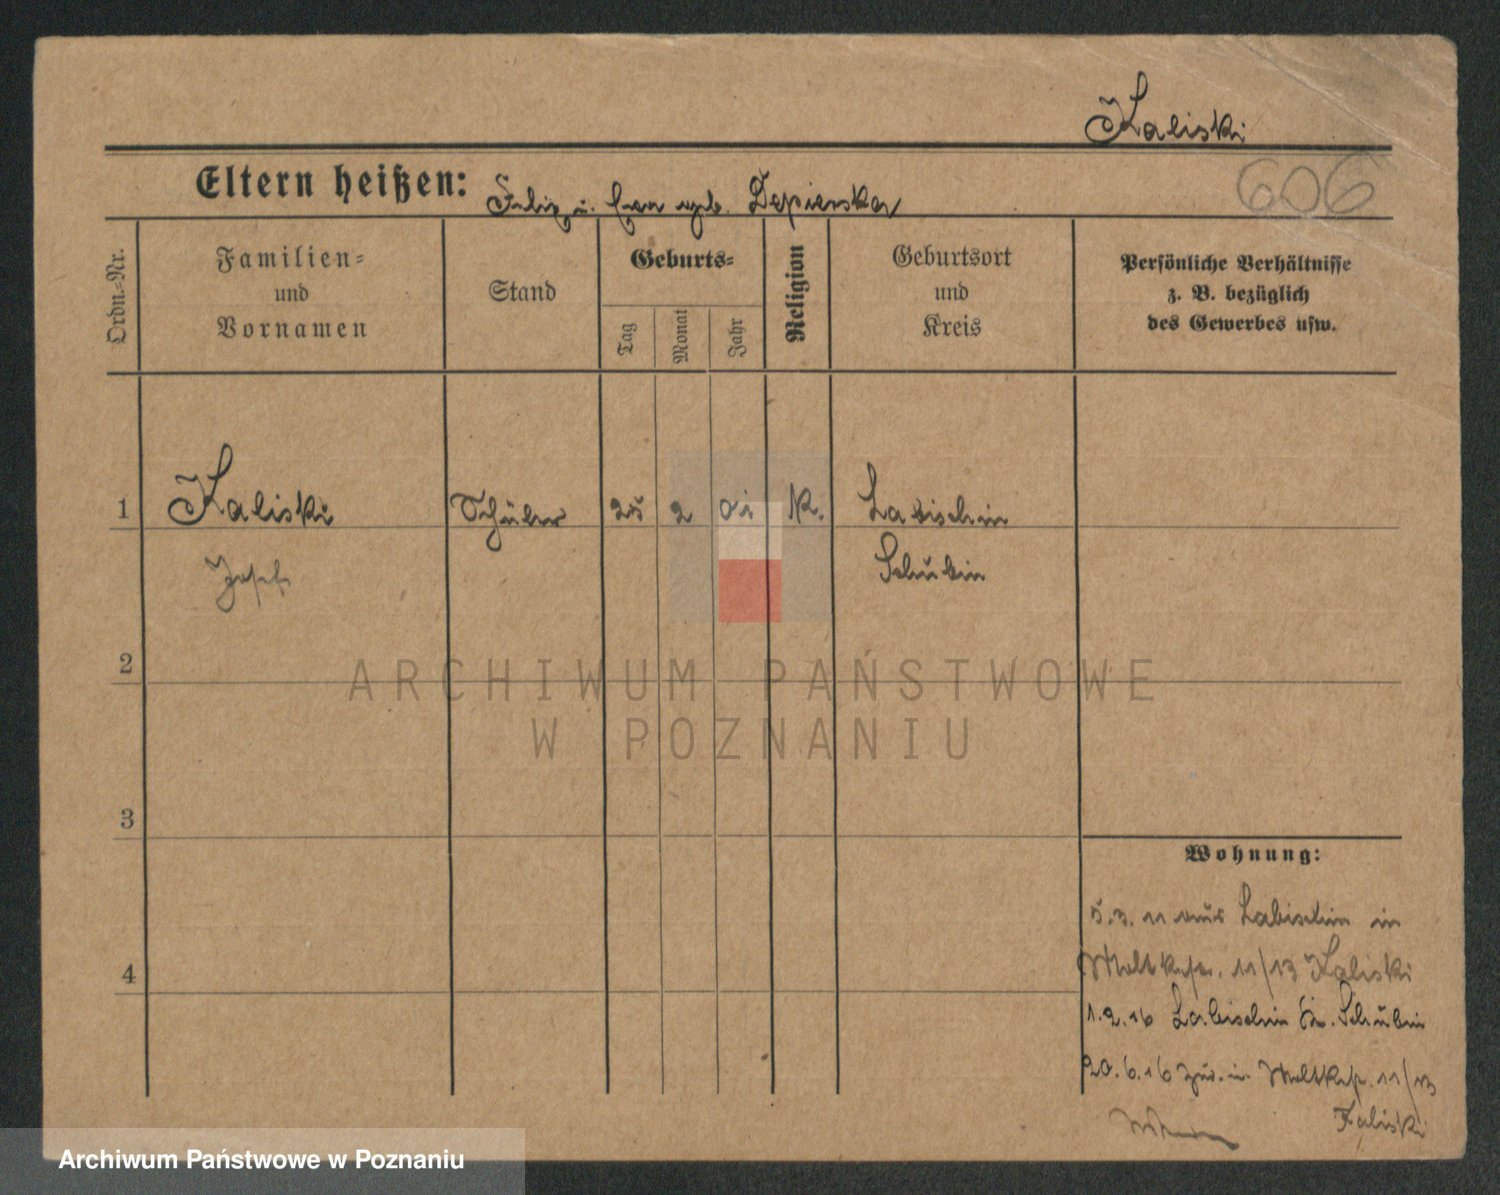 Kaliski
Eltern heißen: Felix u. Eva geb. Depierska
606
Ordn.-Nr.
Familien- und Vornamen
Stand
Geburts-
Tag
Monat
Jahr
Religion
Geburtsort und Kreis
Persönliche Verhältnisse
z. B. bezüglich
des Gewerbes usw.
1 Kaliski Schüler 25 2 01 K. Labischin
Josef Schubin
2
ARCHIWUM PAŃSTWOWE
W POZNANIU
3
Wohnung:
5.3.11 aus Labischin in
11/13 Kaliski
4
1.2.16 Labischin Kr. Schubin
20.6.16 zur. in 11/13
Kaliski
Archiwum Państwowe w Poznaniu